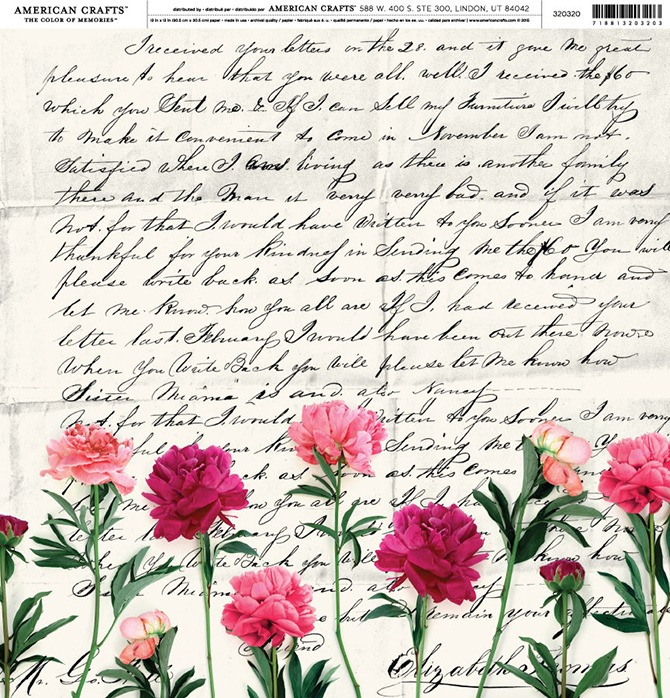 AMERICAN CRAFTS™
THE COLOR OF MEMORIES™
distributed by • distribué par • distribuido por AMERICAN CRAFTS™ 588 W. 400 S. STE 300, LINDON, UT 84042
320320
718813203203
I received your letters on the 28. and it give me great
pleasure to hear that you were all well. I received the $60
which you Sent me. & If I can Sell my Furniture I will try
to make it convenient to come in November I am not
Satisfied where I am living as there is another family
there and the Man is very very bad. and if it was
not for that I would have Written to you Sooner I am very
thankful for your kindness in Sending me the $60 You will
please write back as soon as this comes to hand and
let me know how you all are If I had received your
letter last February I would have been out there Now
When You Write Back you will please let Me know how
Sister is and also Nancy
not for that I would Written to You Sooner I am very
ful Sending me
ck. as soon as this comes
you all are
letter
Write Back you know how
and also
but remain your
Friend
Mr.
Elizabeth